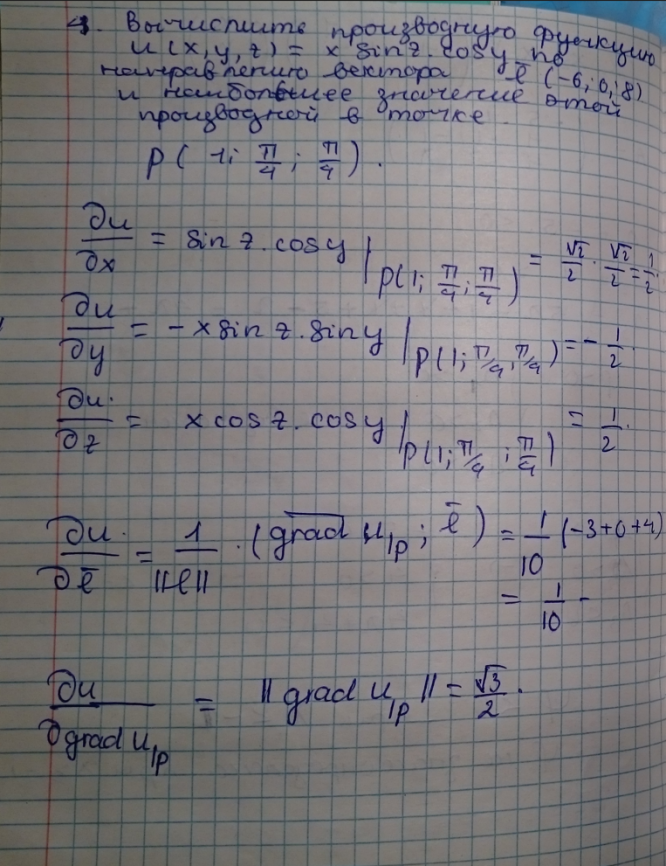 4. Вычислите производную функцию
u(x,y,z) = x sin z · cos y по
направлению вектора ē (-6; 0; 8)
и наибольшее значение этой
производной в точке
P( 1; π/4 ; π/4 ) .
∂u/∂x = sin z · cos y |P(1; π/4; π/4) = √2/2 · √2/2 = 1/2.
∂u/∂y = - x sin z · sin y |P(1; π/4, π/4) = - 1/2 .
∂u/∂z = x cos z · cos y |P(1; π/4 ; π/4) = 1/2 .
∂u/∂ē = 1/||ē|| · (grad u|P ; ē) = 1/10 (-3+0+4)
= 1/10 -
∂u/∂grad u|P = || grad u|P || = √3/2 .